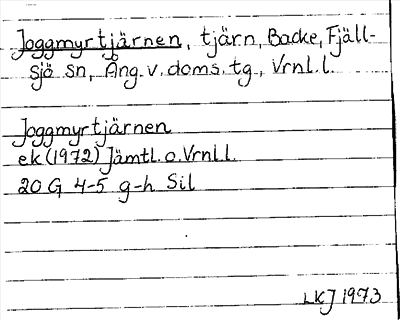 Joggmyrtjärnen, tjärn, Backe, Fjäll-
sjö sn, Ång. v. doms. tg., Vrnl. l.
Joggmyrtjärnen
ek (1972) Jämtl. o. Vrnl. l.
20 G 4-5 g-h Sil
LKJ 1973